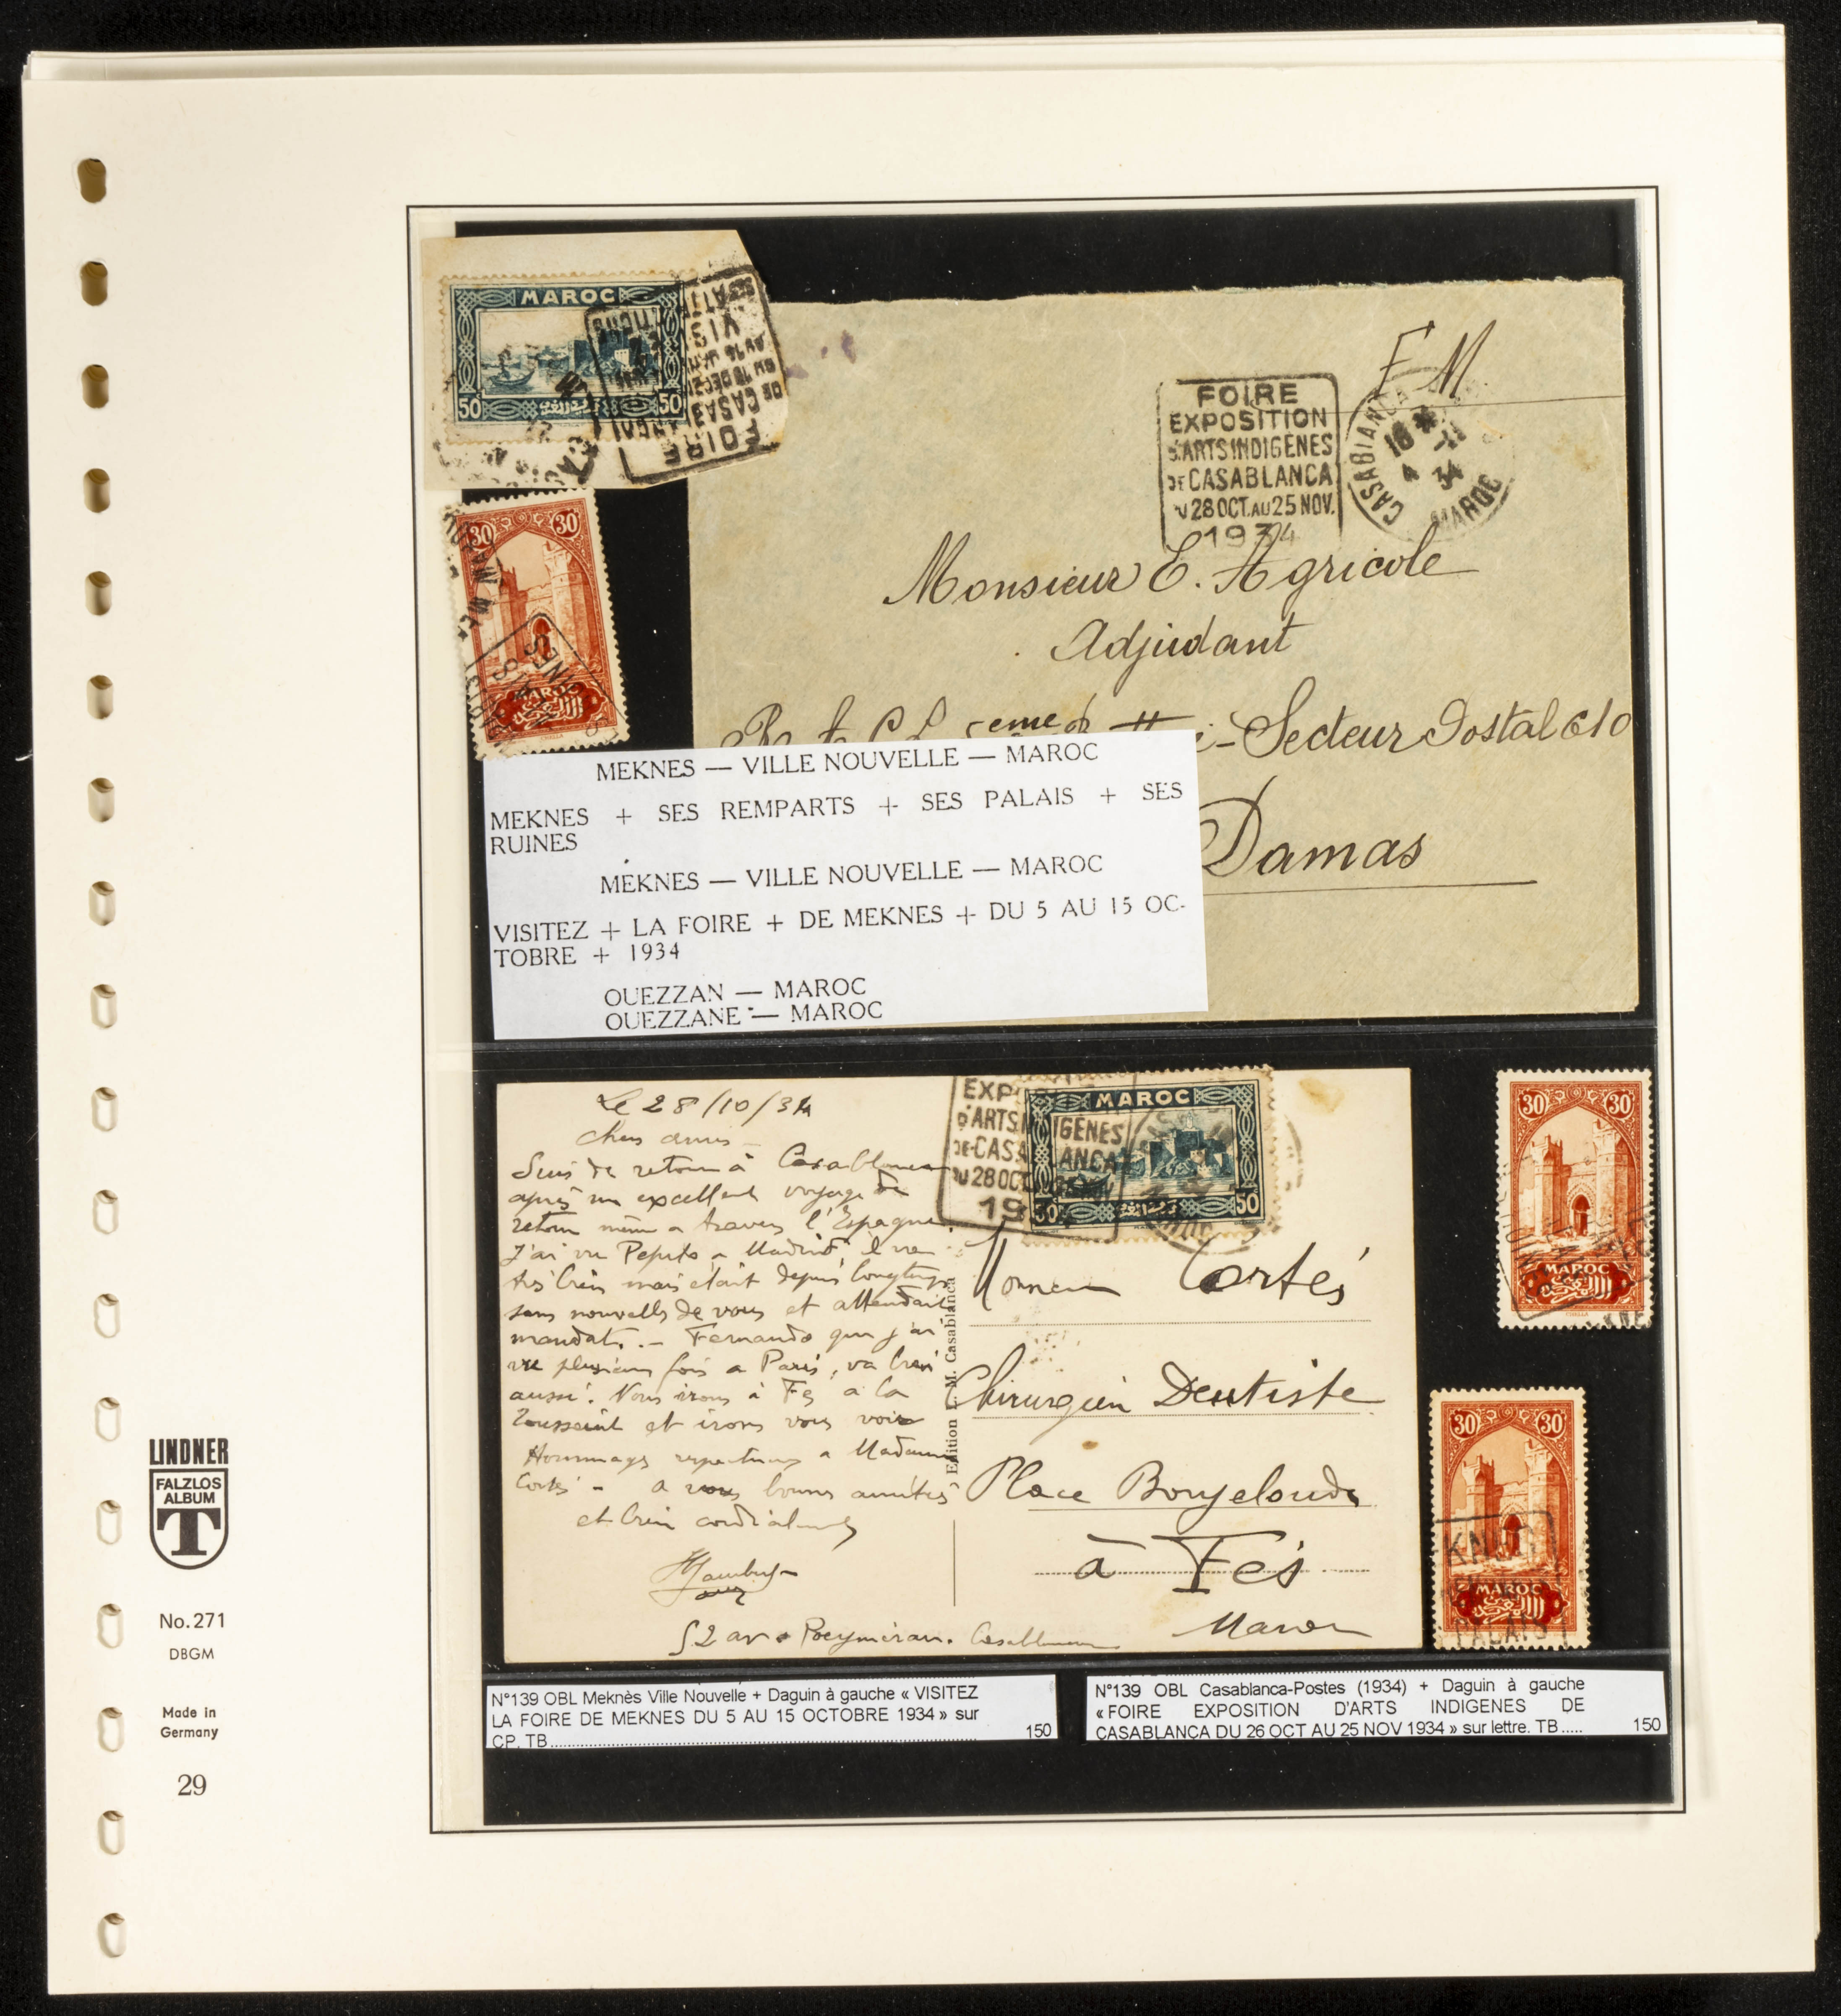 MAROC
50
50
FOIRE
DE CASABLANCA
30
30
MAROC
F.M.
FOIRE
EXPOSITION
D'ARTS INDIGÈNES
DE CASABLANCA
DU 28 OCT. AU 25 NOV.
1934
CASABLANCA
18
4 -11
34
MAROC
Monsieur E. Agricole
Adjudant
Secteur Postal 610
Damas
MEKNES — VILLE NOUVELLE — MAROC
MEKNES + SES REMPARTS + SES PALAIS + SES
RUINES
MEKNES — VILLE NOUVELLE — MAROC
VISITEZ + LA FOIRE + DE MEKNES + DU 5 AU 15 OC-
TOBRE + 1934
OUEZZAN — MAROC
OUEZZANE — MAROC
Le 28/10/34
Chers amis –
Suis de retour à Casablanca
après un excellent voyage de
retour même a travers l'Espagne.
J'ai vu Pepito a Madrid, il va
très bien mais était depuis longtemps
sans nouvelles de vous et attendait
mandat. – Fernando que j'ai
vu plusieurs fois a Paris, va bien
aussi. Nous irons à Fes a la
Toussaint et irons vous voir
Hommages respectueux a Madame
Cortés – a vous bonnes amitiés
et bien cordialement
52 av. Poeymirau. Casablanca
Edition L. M. Casablanca
EXPOSITION
D'ARTS INDIGÈNES
DE CASABLANCA
DU 28 OCT.
19
MAROC
50
50
Monsieur Cortés
Chirurgien Dentiste
Place Boujeloud
à Fés
Maroc
30
30
MAROC
30
30
MAROC
PALAIS
N°139 OBL Meknès Ville Nouvelle + Daguin à gauche « VISITEZ
LA FOIRE DE MEKNES DU 5 AU 15 OCTOBRE 1934 » sur
CP. TB 150
N°139 OBL Casablanca-Postes (1934) + Daguin à gauche
« FOIRE EXPOSITION D'ARTS INDIGENES DE
CASABLANCA DU 26 OCT AU 25 NOV 1934 » sur lettre. TB..... 150
LINDNER
FALZLOS
ALBUM
T
No. 271
DBGM
Made in
Germany
29